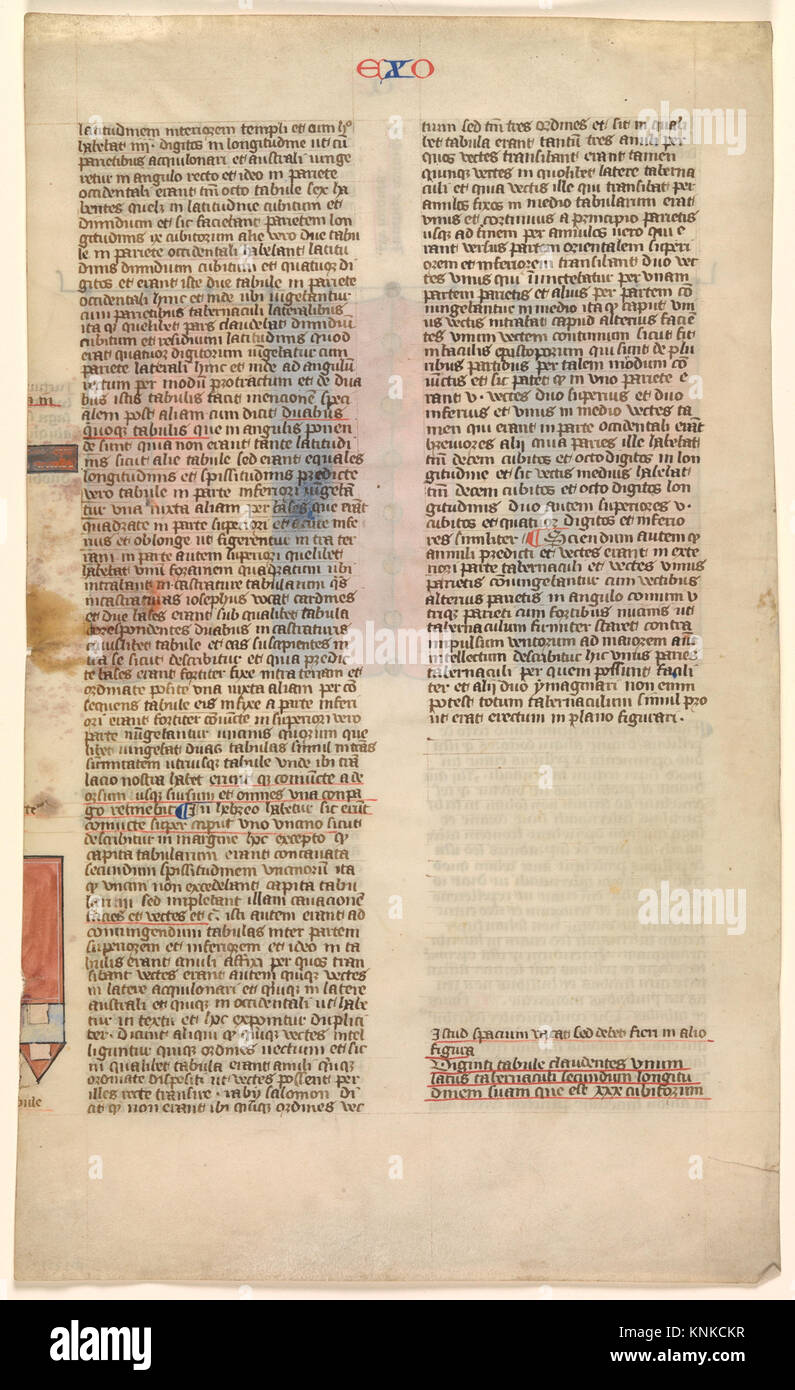 EXO
latitudinem interiorem templi et cum hoc
habebat iiii. digitos in longitudine ut cū
parietibus acquilonari et australi iunge
retur in angulo recto et ideo in pariete
occidentali erant tm̄ octo tabule sex ha
bentes quelibet in latitudine cubitum et
dimidium et sic faciebant parietem lon
gitudinis ix cubitorum alie vero due tabu
le in pariete occidentali habebant latitu
dinis dimidium cubitum et quatuor di
gitos et erant iste due tabule in pariete
occidentali hinc et inde ubi iūgebantur
cum parietibus tabernaculi lateralibus
ita qʼ quelibet pars claudebat dimidiū
cubitum et residuum latitudinis quod
erat quatuor digitorum iūgebatur cum
pariete laterali hinc et inde ad angulū
rectum per modū protractum et de dua
bus istis tabulis facit mencionē speci
alem post aliam cum dicit duabus
quoqʒ tabulis que in angulis ponen
de sunt quia non erant tante latitudi
nis sicut alie tabule sed erant equales
longitudinis et spissitudinis predicte
vero tabule in parte inferiori iūgebā
tur una iuxta aliam per bases que erāt
quadrate in parte superiori et acute infe
rius et oblonge ut figerentur in tra ter
ram in parte autem superiori quelibet
habebat unū foramen quadratum ubi
intrabant in castrature tabularum qs
incastraturas iosephus vocat cardines
et due bases erant sub qualibet tabula
correspondentes duabus incastraturis
cuiuslibet tabule et eas suscipientes in
tra se sicut describitur et quia predic
te bases erant fortiter fixe intra terram et
ordinate posite una iuxta aliam per cō
sequens tabule eis infixe a parte inferi
ori erant fortiter coniūcte in superiori vero
parte iungebantur uncinis quorum que
libet iungebat duas tabulas simul intrās
summitatem utriusqʒ tabule unde ibi trā
lacio nostra habet erunt qʒ coniuncte a de
orsum usqʒ sursum et omnes una conpa
go retinebit In hebreo habetur sic erūt
coniucte super caput uno uncino sicut
describitur in margine hoc excepto qʼ
capita tabularum erant concavata
secundum spissitudinem uncinorum ita
qʼ uncini non excedebant capita tabu
larum sed implebant illam cavacionē
facies et vectes et cʼ. isti autem erant ad
contingendum tabulas inter partem
superiorem et inferiorem et ideo in ta
bulis erant anuli affixi per quos tran
sibant vectes erant autem quinqʒ vectes
in latere acquilonari et quinqʒ in latere
australi et quinqʒ in occidentali ut habe
tur in textu et hoc exponitur duplici
ter. Dicunt aliqui qʼ quinqʒ vectes intel
liguntur quinqʒ ordines vectium et sic
in qualibet tabula erant anuli quinqʒ
ordinate dispositi ut vectes possent per
illos recte transire. raby salomon di
cit qʼ non erant ibi quinqʒ ordines vec
tium sed tm̄ tres ordines et sic in quali
bet tabula erant tantū tres anuli per
quos vectes transibant erant tamen
quinqʒ vectes in quolibet latere taberna
culi et quia vectis ille qui transibat per
anulos fixos in medio tabularum erat
unus et continuus a principio parietis
usqʒ ad finem per annulos vero qui e
rant versus partem orientalem superi
orem et inferiorem transibant duo vec
tes unus qui iunctebatur per unam
partem parietis et alius per partem cō
iungebantur in medio ita qʼ caput uni
us vectis intrabat capud alterius faciē
tes unum vectem continuum sicut fit
in baculis episcoporum qui sunt de plu
ribus partibus per talem modum con
iūctis et sic patet qʼ in uno pariete e
rant v. vectes duo superius et duo
inferius et unus in medio vectes ta
men qui erant in parte occidentali erāt
breviores alii quia paries ille habebat
tm̄ decem cubitos et octo digitos in lon
gitudine et sic vectis medius habebat
tm̄ decem cubitos et octo digitos lon
gitudinis duo autem superiores v.
cubitos et quatuor digitos et inferio
res similiter Sciendum autem qʼ
annuli predicti et vectes erant in exte
riori parte tabernaculi et vectes unius
parietis coniungebantur cum vectibus
alterius parietis in angulo comuni u
triqʒ parieti cum fortibus nucinis ut
tabernaculum firmiter staret contra
impulsum ventorum ad maiorem autē
intellectum describitur hic unus paries
tabernaculi per quem possunt facili
ter et alii duo ymaginari non enim
potest totum tabernaculum simul pro
ut erat erectum in plano figurari.
Istud spacium vacat sed debet fieri in alio
figura
Viginti tabule claudentes unum
latus tabernaculi secundum longitu
dinem suam que est xxx cubitorum
alamy
Image ID: KNKCKR
www.alamy.com